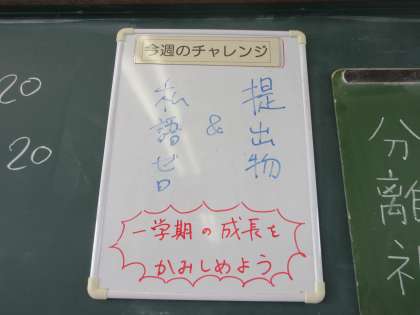 今週のチャレンジ
提出物
&
私語ゼロ
一学期の成長を
かみしめよう
20
20
分離